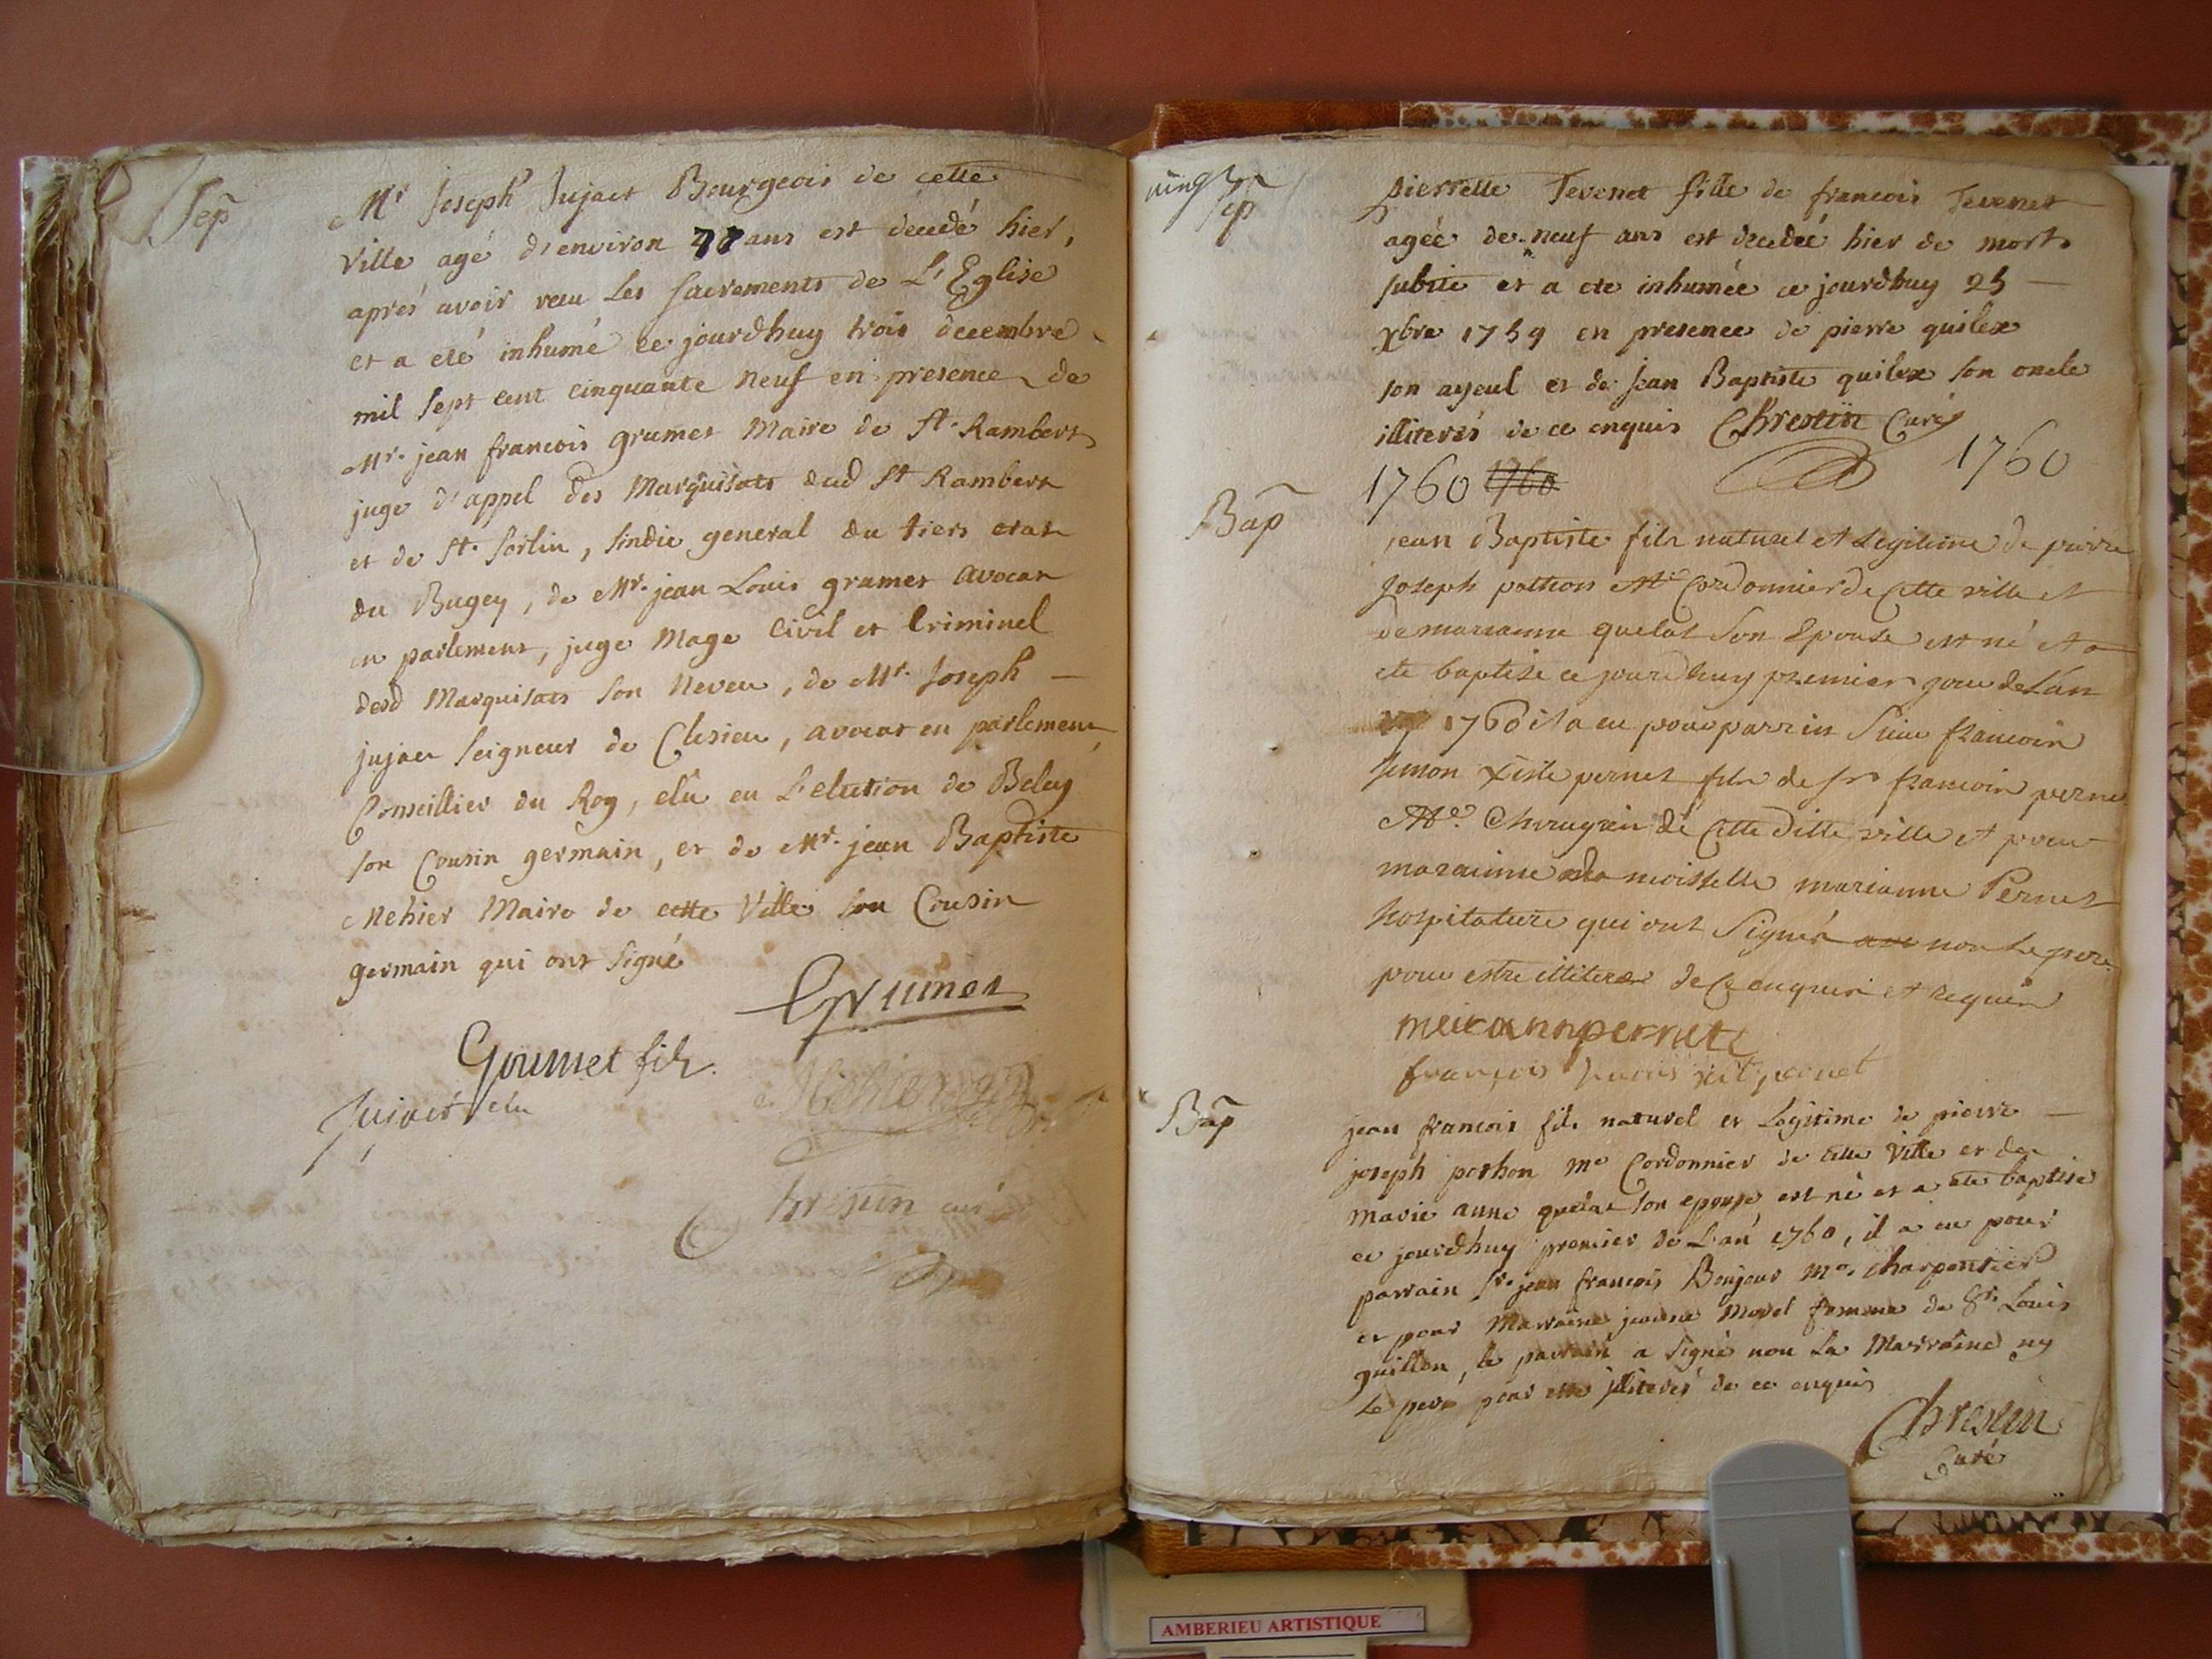 Sep
Mr Joseph Jujaet Bourgeois de cette
Ville agé d'environ ans est decedé hier,
aprés avoir recu Les Sacrements de L'Eglise
et a eté inhumé ce jourdhuy trois decembre
mil Sept cent cinquante neuf en presence de
Mr. jean francois grumet Maire de St. Rambert
juge d'appel des Marquisats dud St Rambert
et de St. Sorlin, sindic general du tiers etat
du Bugey, de Mr. jean Louis grumet avocat
en parlement, juge Mage Civil et Criminel
desd Marquisats son Neveu, de Mr. Joseph
jujaet Seigneur de Clesieu, avocat en parlement,
Conseillier du Roy, elû en L'election de Beley
son Cousin germain, et de Mr. jean Baptiste
Mehier Maire de cette Ville son Cousin
germain qui ont signé
Grumet
Grumet fils.
Jujaet elu
Mehier
Chrestin curé
Sep
pierrette Tevenet fille de francois Tevenet
agée de neuf ans est decedée hier de mort
subite et a ete inhumée ce jourdhuy 25
Xbre 1759 en presence de pierre quilex
son ayeul et de Jean Baptiste quilex son oncle
illiterés de ce enquis Chrestin Curé
1760 1760 1760
Bap
jean Baptiste fils naturel et Legitime de pierre
Joseph pothon Me Cordonnier de Cette ville et
de marianne quelat son Epouse est né et a
ete baptisé ce jourdhuy premier jour de L'an
1760 il a eu pour parrin Sieur francois
Simon xiste pernet fils de sr francois pernet
Me. Chirugien de Cette ditte ville et pour
marainne demoisselle marianne Pernet
hospitaliere qui ont Signés non Le pere
pour estre illiteré de Ce enquis et requis
meirannpernete
françois pernet
Bap
jean francois fils naturel et Legitime de pierre
joseph pothon me Cordonnier de cette Ville et de
marie anne quelat son epouse est né et a ete baptisé
ce jourdhuy premier de L'an 1760, il a eu pour
parrain Sr. jean francois Bonjour me. Charpentier
et pour Marraine jeanne Morel femme de Sr. Louis
guillon, le parrain a signé non La Marraine ny
Le pere pour etre illiterés de ce enquis
Chrestin
Curé
AMBERIEU ARTISTIQUE